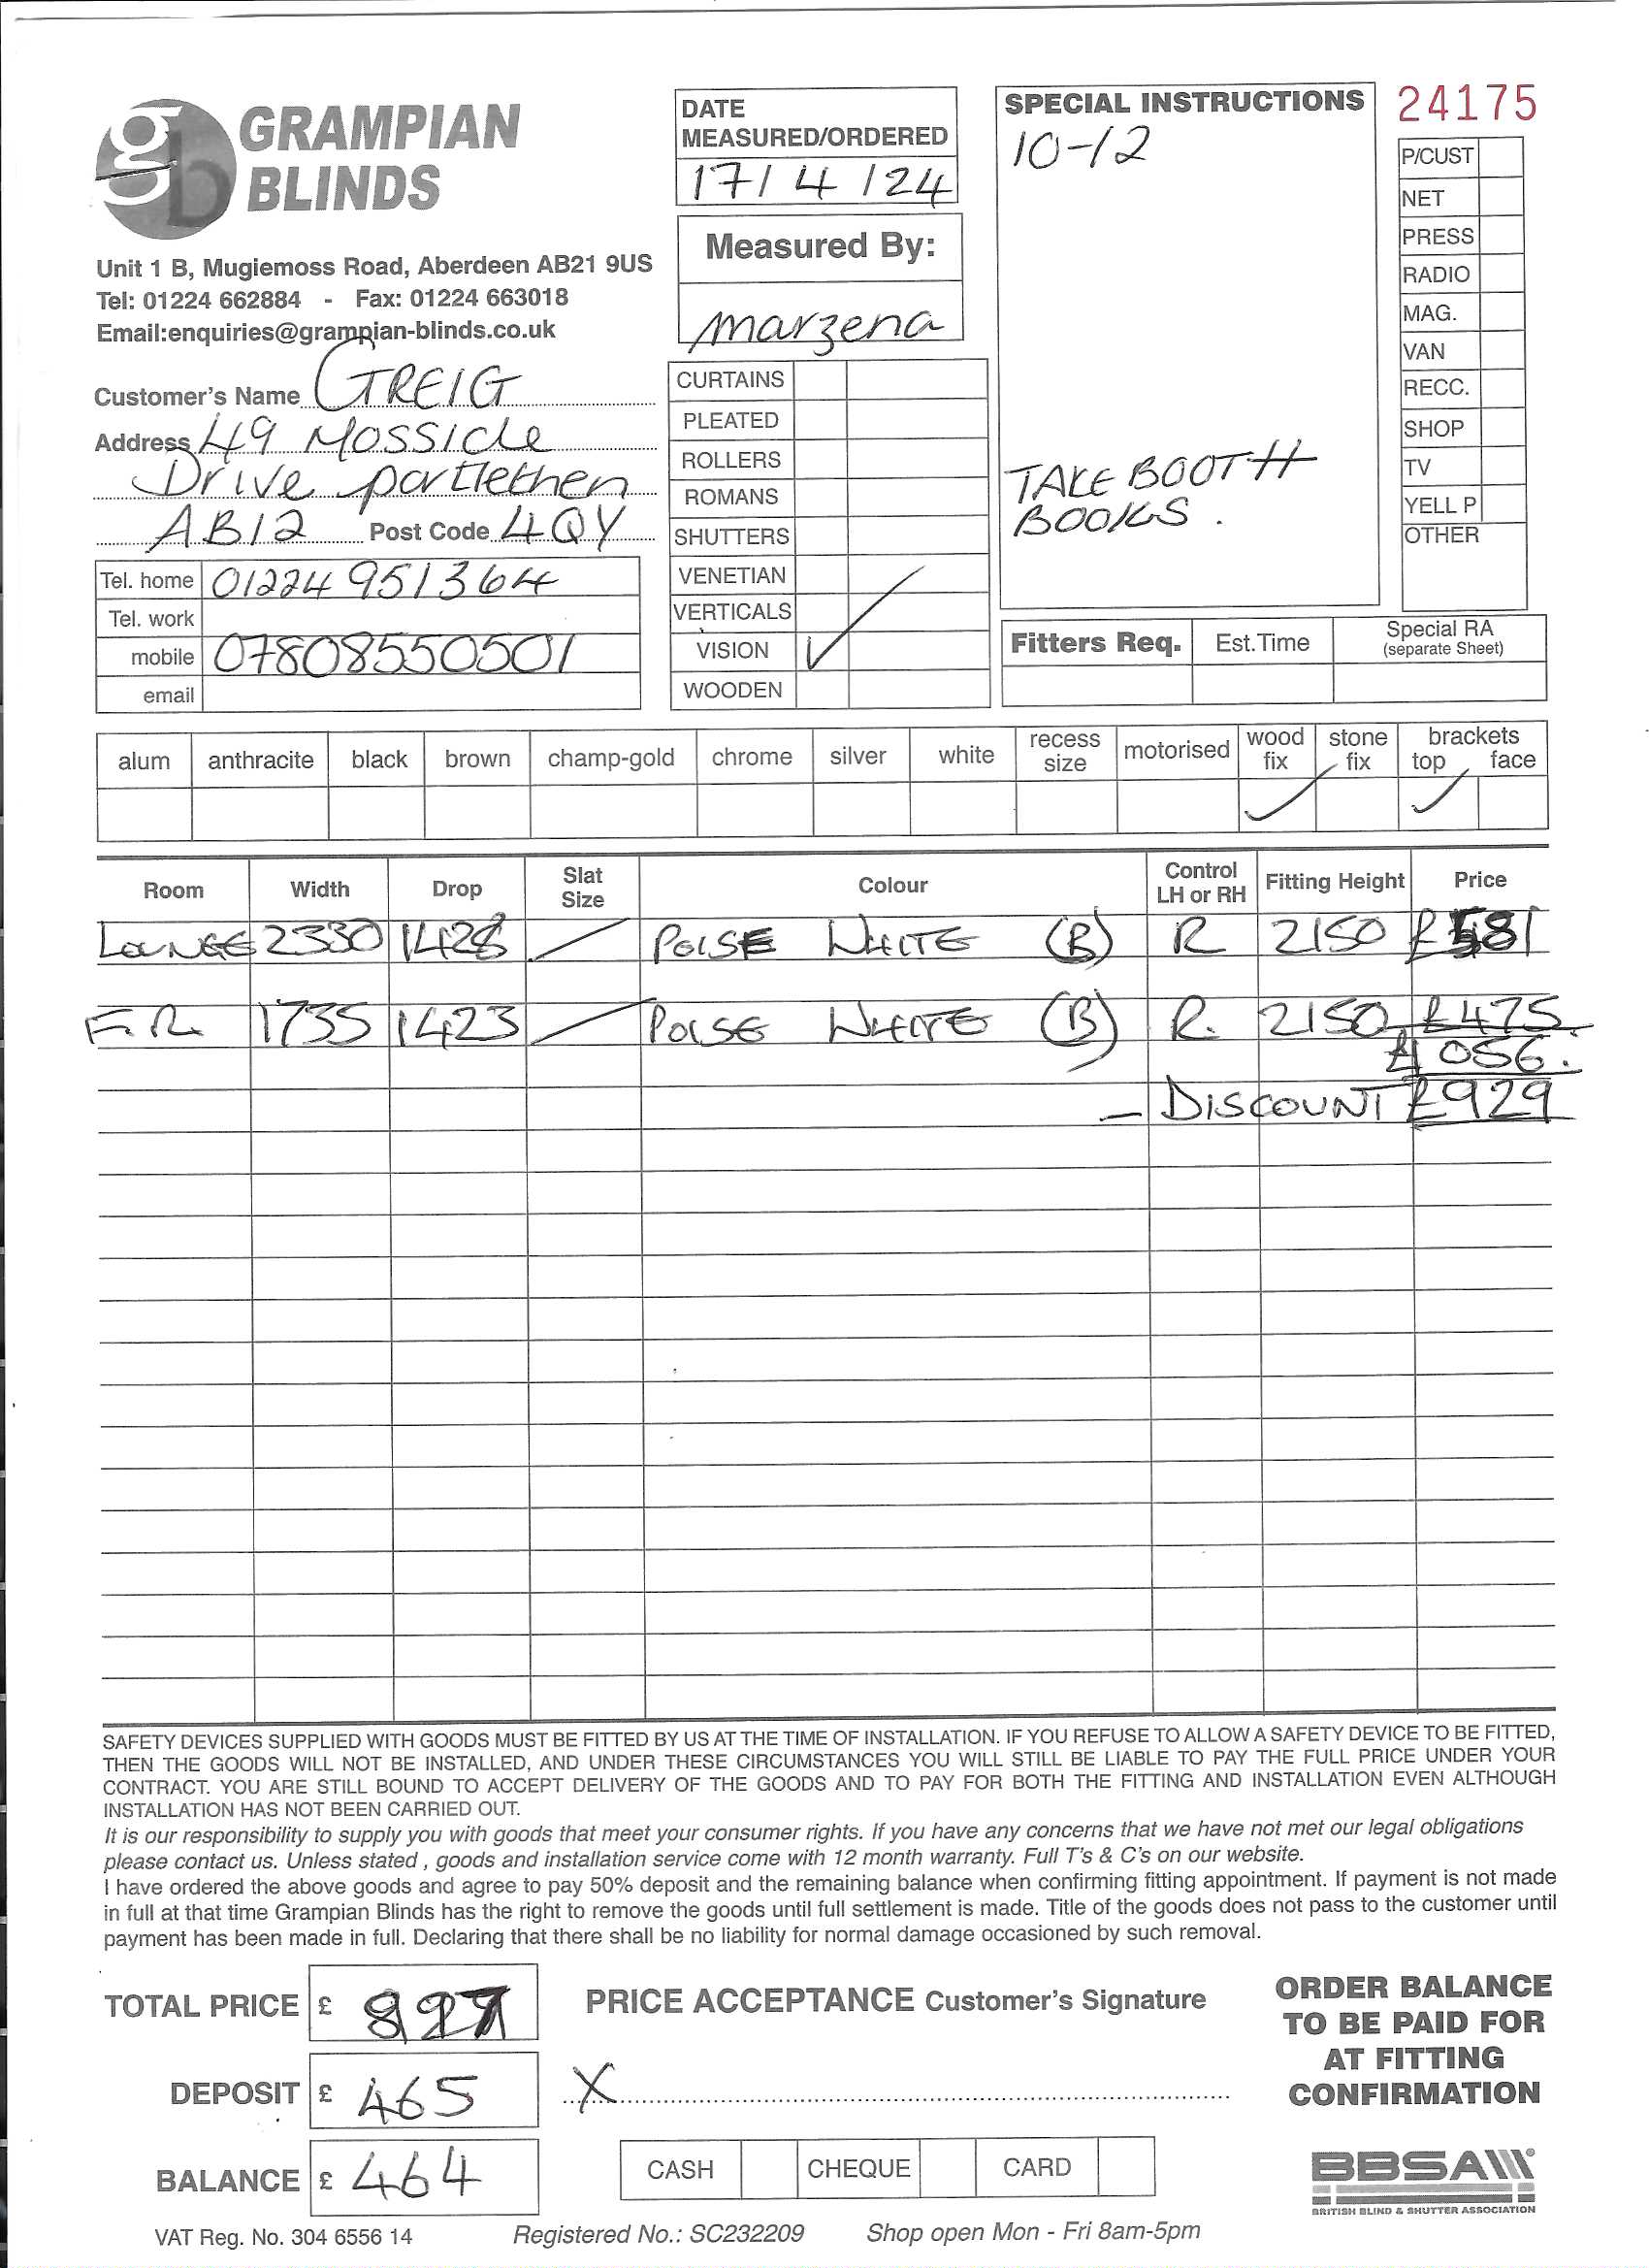 GRAMPIAN
BLINDS
Unit 1 B, Mugiemoss Road, Aberdeen AB21 9US
Tel: 01224 662884 - Fax: 01224 663018
Email:enquiries@grampian-blinds.co.uk
Customer's Name GREIG
Address 49 Mosside
Drive portlethen
AB12 Post Code 4QY
Tel. home 01224 951364
Tel. work
mobile 07808550501
email
DATE
MEASURED/ORDERED
17/4/24
Measured By:
marzena
CURTAINS
PLEATED
ROLLERS
ROMANS
SHUTTERS
VENETIAN
VERTICALS
VISION ✓
WOODEN
SPECIAL INSTRUCTIONS
10-12
TAKE BOOTH
BOOKS.
24175
P/CUST
NET
PRESS
RADIO
MAG.
VAN
RECC.
SHOP
TV
YELL P
OTHER
Fitters Req. Est.Time Special RA
(separate Sheet)
alum anthracite black brown champ-gold chrome silver white recess size motorised wood fix stone fix brackets top face
✓ ✓
Room Width Drop Slat Size Colour Control LH or RH Fitting Height Price
LOUNGE 2330 1428 / POISE WHITE (B) R 2150 £581
F.R. 1735 1423 / POISE WHITE (B) R. 2150 £475.
£1056.
- DISCOUNT £929
SAFETY DEVICES SUPPLIED WITH GOODS MUST BE FITTED BY US AT THE TIME OF INSTALLATION. IF YOU REFUSE TO ALLOW A SAFETY DEVICE TO BE FITTED,
THEN THE GOODS WILL NOT BE INSTALLED, AND UNDER THESE CIRCUMSTANCES YOU WILL STILL BE LIABLE TO PAY THE FULL PRICE UNDER YOUR
CONTRACT. YOU ARE STILL BOUND TO ACCEPT DELIVERY OF THE GOODS AND TO PAY FOR BOTH THE FITTING AND INSTALLATION EVEN ALTHOUGH
INSTALLATION HAS NOT BEEN CARRIED OUT.
It is our responsibility to supply you with goods that meet your consumer rights. If you have any concerns that we have not met our legal obligations
please contact us. Unless stated , goods and installation service come with 12 month warranty. Full T's & C's on our website.
I have ordered the above goods and agree to pay 50% deposit and the remaining balance when confirming fitting appointment. If payment is not made
in full at that time Grampian Blinds has the right to remove the goods until full settlement is made. Title of the goods does not pass to the customer until
payment has been made in full. Declaring that there shall be no liability for normal damage occasioned by such removal.
TOTAL PRICE £
DEPOSIT £ 465
BALANCE £ 464
PRICE ACCEPTANCE Customer's Signature
X
CASH CHEQUE CARD
ORDER BALANCE
TO BE PAID FOR
AT FITTING
CONFIRMATION
BBSA
BRITISH BLIND & SHUTTER ASSOCIATION
VAT Reg. No. 304 6556 14 Registered No.: SC232209 Shop open Mon - Fri 8am-5pm